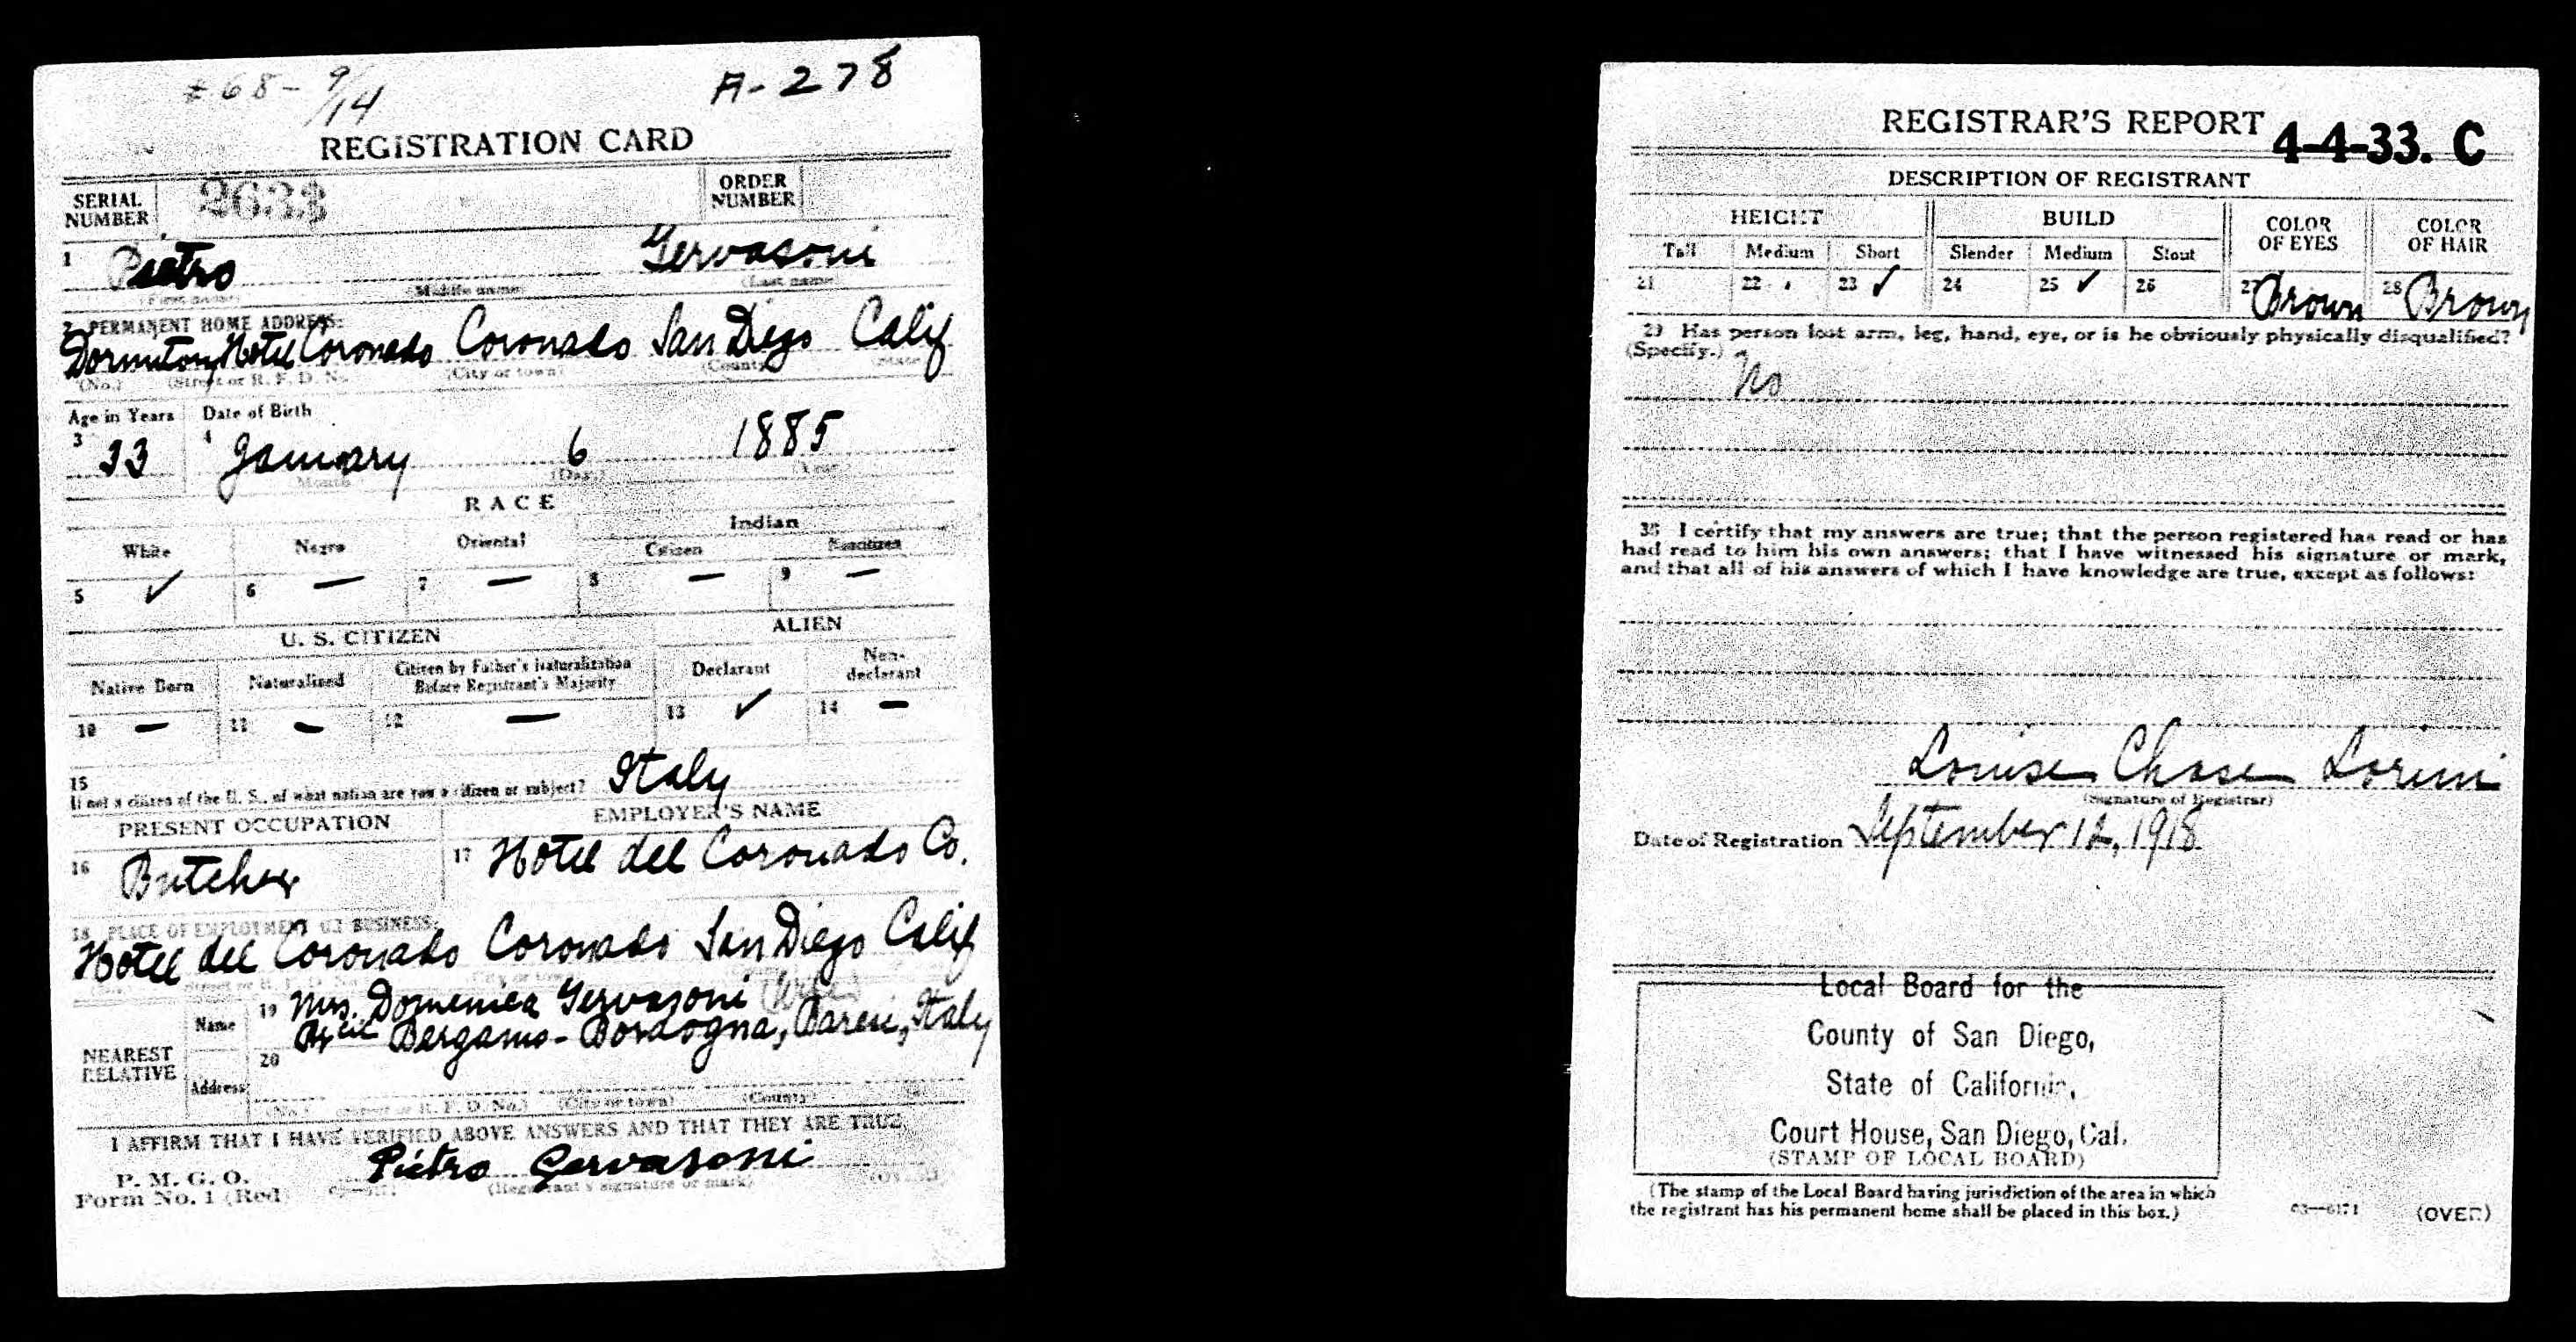 #68- 9/14
A-278
REGISTRATION CARD
SERIAL NUMBER 2633 ORDER NUMBER
1 Pietro Gervasoni
(First name) (Middle name) (Last name)
2 PERMANENT HOME ADDRESS:
Dormitory Hotel Coronado Coronado San Diego Calif
(No.) (Street or R. F. D. No.) (City or town) (County) (State)
Age in Years Date of Birth
3 33 4 January 6 1885
Month (Day.) (Year.)
RACE
White Negro Oriental Indian
Citizen Noncitizen
5 ✓ 6 — 7 — 8 — 9 —
U. S. CITIZEN ALIEN
Native Born Naturalized Citizen by Father's Naturalization Before Registrant's Majority Declarant Non-declarant
10 — 11 — 12 — 13 ✓ 14 —
15
If not a citizen of the U. S., of what nation are you a citizen or subject? Italy
PRESENT OCCUPATION EMPLOYER'S NAME
16 Butcher 17 Hotel del Coronado Co.
18 PLACE OF EMPLOYMENT OR BUSINESS:
Hotel del Coronado Coronado San Diego Calif
NEAREST RELATIVE
Name 19 Mrs. Domenica Gervasoni (Wife)
Bergamo - Bordogna, Italy
Address 20
(No.) (Street or R. F. D. No.) (City or town) (County)
I AFFIRM THAT I HAVE VERIFIED ABOVE ANSWERS AND THAT THEY ARE TRUE
P. M. G. O.
Form No. 1 (Red) Pietro Gervasoni
(Registrant's signature or mark) (OVER)
REGISTRAR'S REPORT 4-4-33. C
DESCRIPTION OF REGISTRANT
HEIGHT BUILD COLOR OF EYES COLOR OF HAIR
Tall Medium Short Slender Medium Stout
21 22 23 ✓ 24 25 ✓ 26 27 Brown 28 Brown
29 Has person lost arm, leg, hand, eye, or is he obviously physically disqualified?
(Specify.) No
30 I certify that my answers are true; that the person registered has read or has
had read to him his own answers; that I have witnessed his signature or mark,
and that all of his answers of which I have knowledge are true, except as follows:
Louise Chase Lorini
(Signature of Registrar)
Date of Registration September 12, 1918
Local Board for the
County of San Diego,
State of California,
Court House, San Diego, Cal.
(STAMP OF LOCAL BOARD)
(The stamp of the Local Board having jurisdiction of the area in which
the registrant has his permanent home shall be placed in this box.)
03—6171 (OVER)